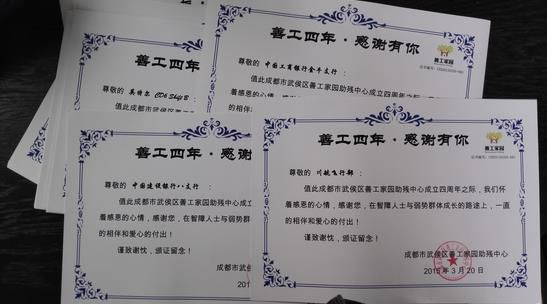 善工四年·感谢有你
善工家园
尊敬的 中国工商银行金牛支行：
值此成都市武侯区善工家园助残中心成立四周年之际，我们怀
善工四年·感谢
尊敬的 英特尔 CD6 Shift B：
值此成都市武侯区善工家园助残
善工四年·感谢
尊敬的 中国建设银行八支行：
值此成都市武侯区善工家园助残中心成
着感恩的心情，感谢您，在智障人士与弱势
的相伴和爱心的付出！
谨致谢忱，颁证留念！
成都市武侯区
善工四年·感谢有你
善工家园
尊敬的 川航飞行部：
值此成都市武侯区善工家园助残中心成立四周年之际，我们怀
着感恩的心情，感谢您，在智障人士与弱势群体成长的路途上，一直
的相伴和爱心的付出！
谨致谢忱，颁证留念！
成都市武侯区善工家园助残中心
2015年3月20日